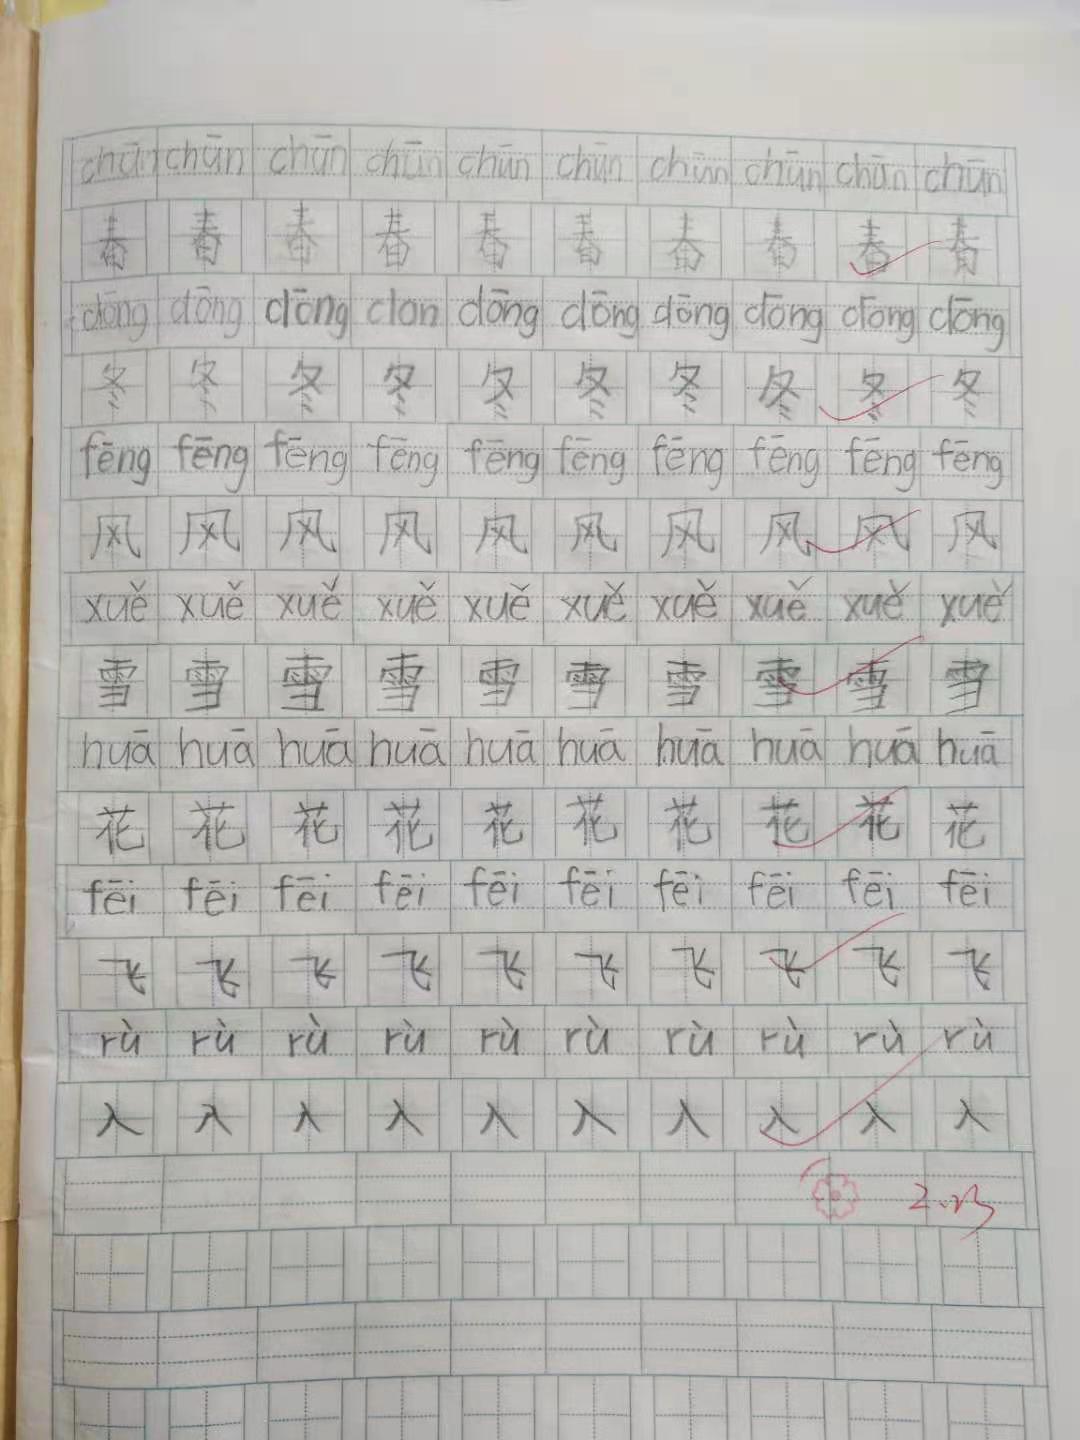 chūn chūn chūn chūn chūn chūn chūn chūn chūn chūn
春 春 春 春 春 春 春 春 春 春
dōng dōng dōng clon dōng dōng dōng dōng dōng dōng
冬 冬 冬 冬 冬 冬 冬 冬 冬 冬
fēng fēng fēng fēng fēng fēng fēng fēng fēng fēng
风 风 风 风 风 风 风 风 风 风
xuě xuě xuě xuě xuě xuě xuě xuě xuě xuě
雪 雪 雪 雪 雪 雪 雪 雪 雪 雪
huā huā huā huā huā huā huā huā huā huā
花 花 花 花 花 花 花 花 花 花
fēi fēi fēi fēi fēi fēi fēi fēi fēi fēi
飞 飞 飞 飞 飞 飞 飞 飞 飞 飞
rù rù rù rù rù rù rù rù rù rù
入 入 入 入 入 入 入 入 入 入